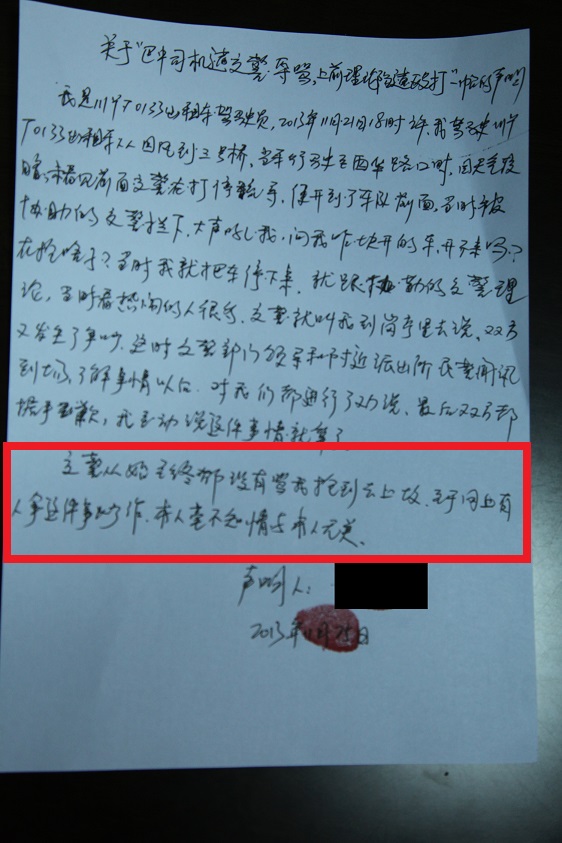 关于"巴中司机遭交警辱骂,上前理论遭殴打"一帖的声明
我是川YT0133出租车驾驶员,2013年11月21日18时许,我驾驶川Y
T0133出租车从回风到三号桥,当车行驶至西华路口时,因天色较
暗,未看见前面交警在打停靠手,便开到了车队前面,当时被
协助的交警拦下,大声吼我,问我咋块开的车,开不来吗?
在抢啥子?当时我就把车停下来,就跟执勤的交警理
论,当时看热闹的人很多,交警就叫我到岗亭里去说,双方
又发生了争吵,这时交警部门领导和附近派出所民警闻讯
到场,了解事情以后,对我们都进行了劝说,最后双方都
握手道歉,我主动说这件事情就算了
交警从始至终都没有骂我抢到去上坟,至于网上有
人拿这件事炒作,本人毫不知情与本人无关。
声明人:
2013年11月25日